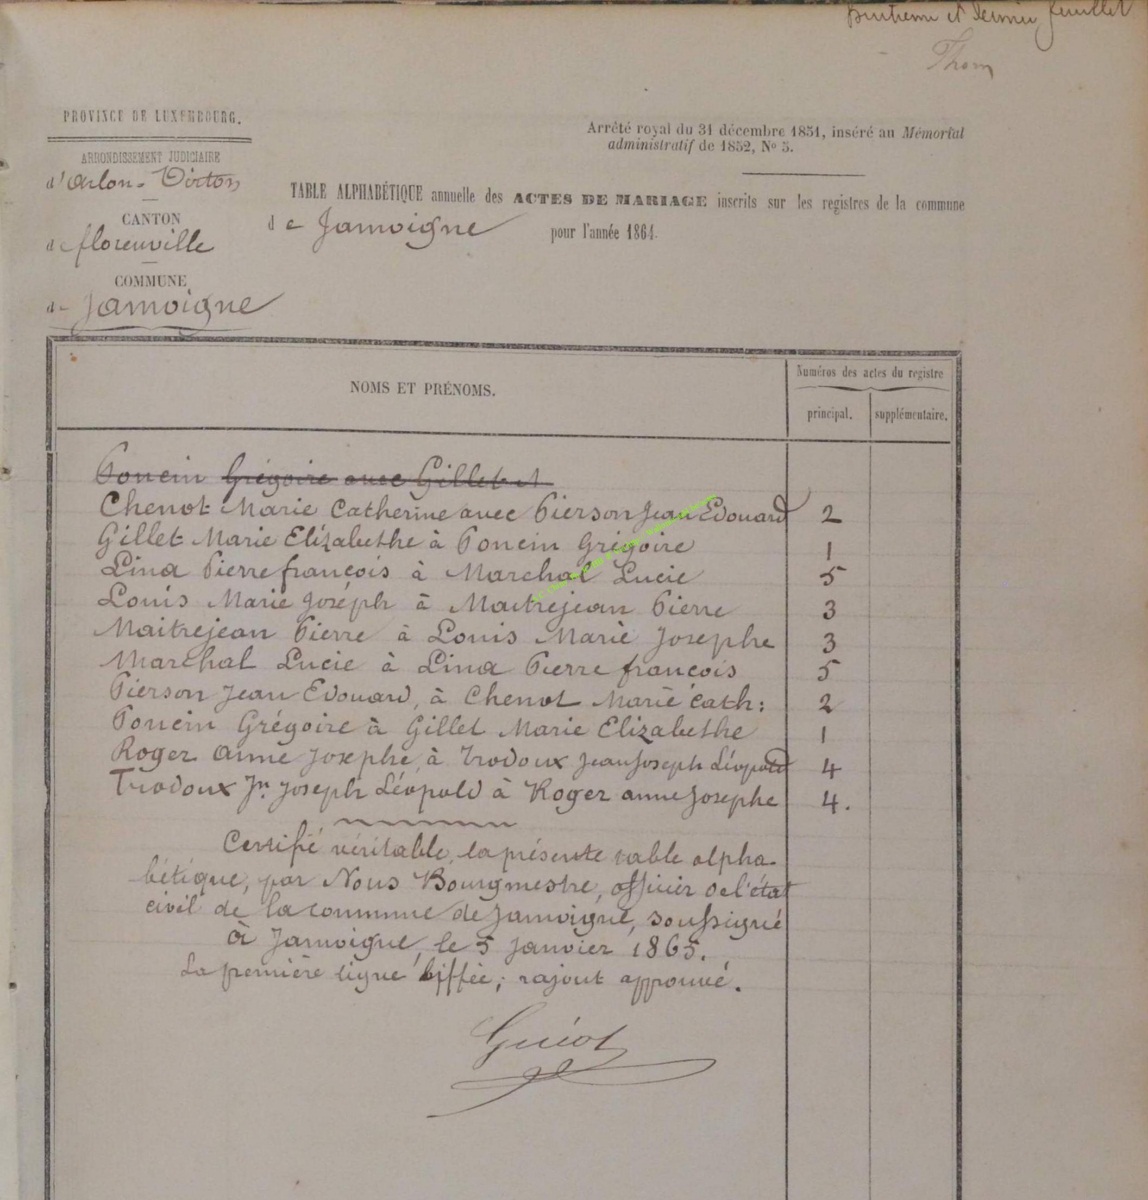 huitième et dernier feuillet
Thom
PROVINCE DE LUXEMBOURG.
ARRONDISSEMENT JUDICIAIRE
d'Arlon-Virton
CANTON
de florenville
COMMUNE
de Jamoigne
Arrêté royal du 31 décembre 1851, inséré au Mémorial
administratif de 1852, No 5.
TABLE ALPHABÉTIQUE annuelle des ACTES DE MARIAGE inscrits sur les registres de la commune
de Jamoigne pour l'année 1864.
NOMS ET PRÉNOMS.
Numéros des actes du registre
principal. supplémentaire.
Poncin Grégoire avec Gillet
Chenot Marie Catherine avec Pierson Jean Edouard 2
Gillet Marie Elizabethe à Poncin Grégoire 1
Lina Pierre françois à Marchal Lucie 5
Louis Marie Joséph à Maitrejean Pierre 3
Maitrejean Pierre à Louis Marie Josephe 3
Marchal Lucie à Lina Pierre françois 5
Pierson Jean Edouard, à Chenot Marie Cath: 2
Poncin Grégoire à Gillet Marie Elizabethe 1
Roger Anne Josephe, à Trodoux Jean Joseph Léopold 4
Trodoux Jn Joseph Léopold à Roger anne Josephe 4.
Certifié véritable, la présente table alpha-
bétique, par Nous Bourgmestre, officier de l'état
civil de la commune de Jamoigne, soussigné
à Jamoigne, le 5 Janvier 1865.
La première ligne biffée; rajout approuvé.
Guiot